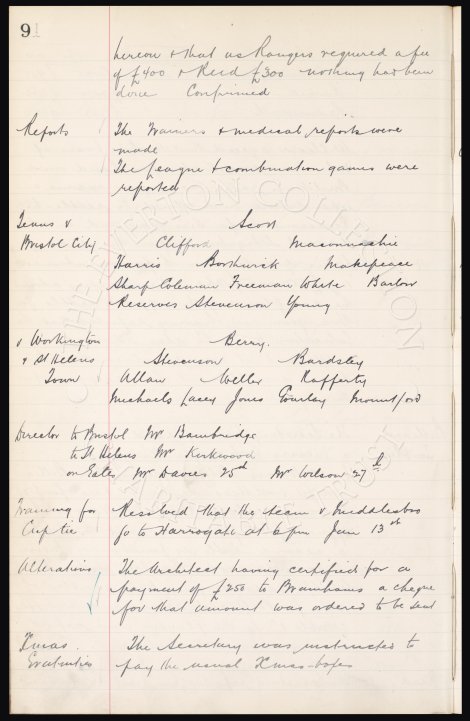 91
hereon & that as Rangers required a fee
of £400 & Reid £300 nothing had been
done Confirmed
Reports The Trainers & medical reports were
made
The League & combination games were
reported
Teams v Scott
Bristol City Clifford Maconnachie
Harris Borthwick Makepeace
Sharp Coleman Freeman White Barlow
Reserves Stevenson Young
v Workington Berry.
& St Helens Stevenson Bardsley
Town Allan Weller Rafferty
Michaels Lacey Jones Gourley Mountford
Director to Bristol Mr Bainbridge
to St Helens Mr Kirkwood
on Gates Mr Davies 25th Mr Wilson 27th
Training for Resolved that the team v Middlesbro
Cup tie go to Harrogate at 6pm Jan 13th
Alterations The Architect having certified for a
payment of £250 to Brambams a cheque
for that amount was ordered to be sent
Xmas The Secretary was instructed to
Gratuities pay the usual Xmas-boxes
THE EVERTON COLLECTION
CHARITABLE TRUST